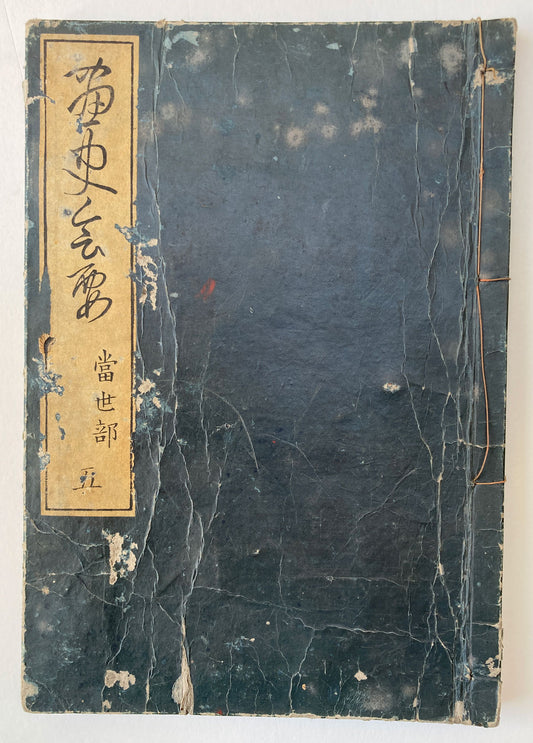 畫史会要
當世部
五